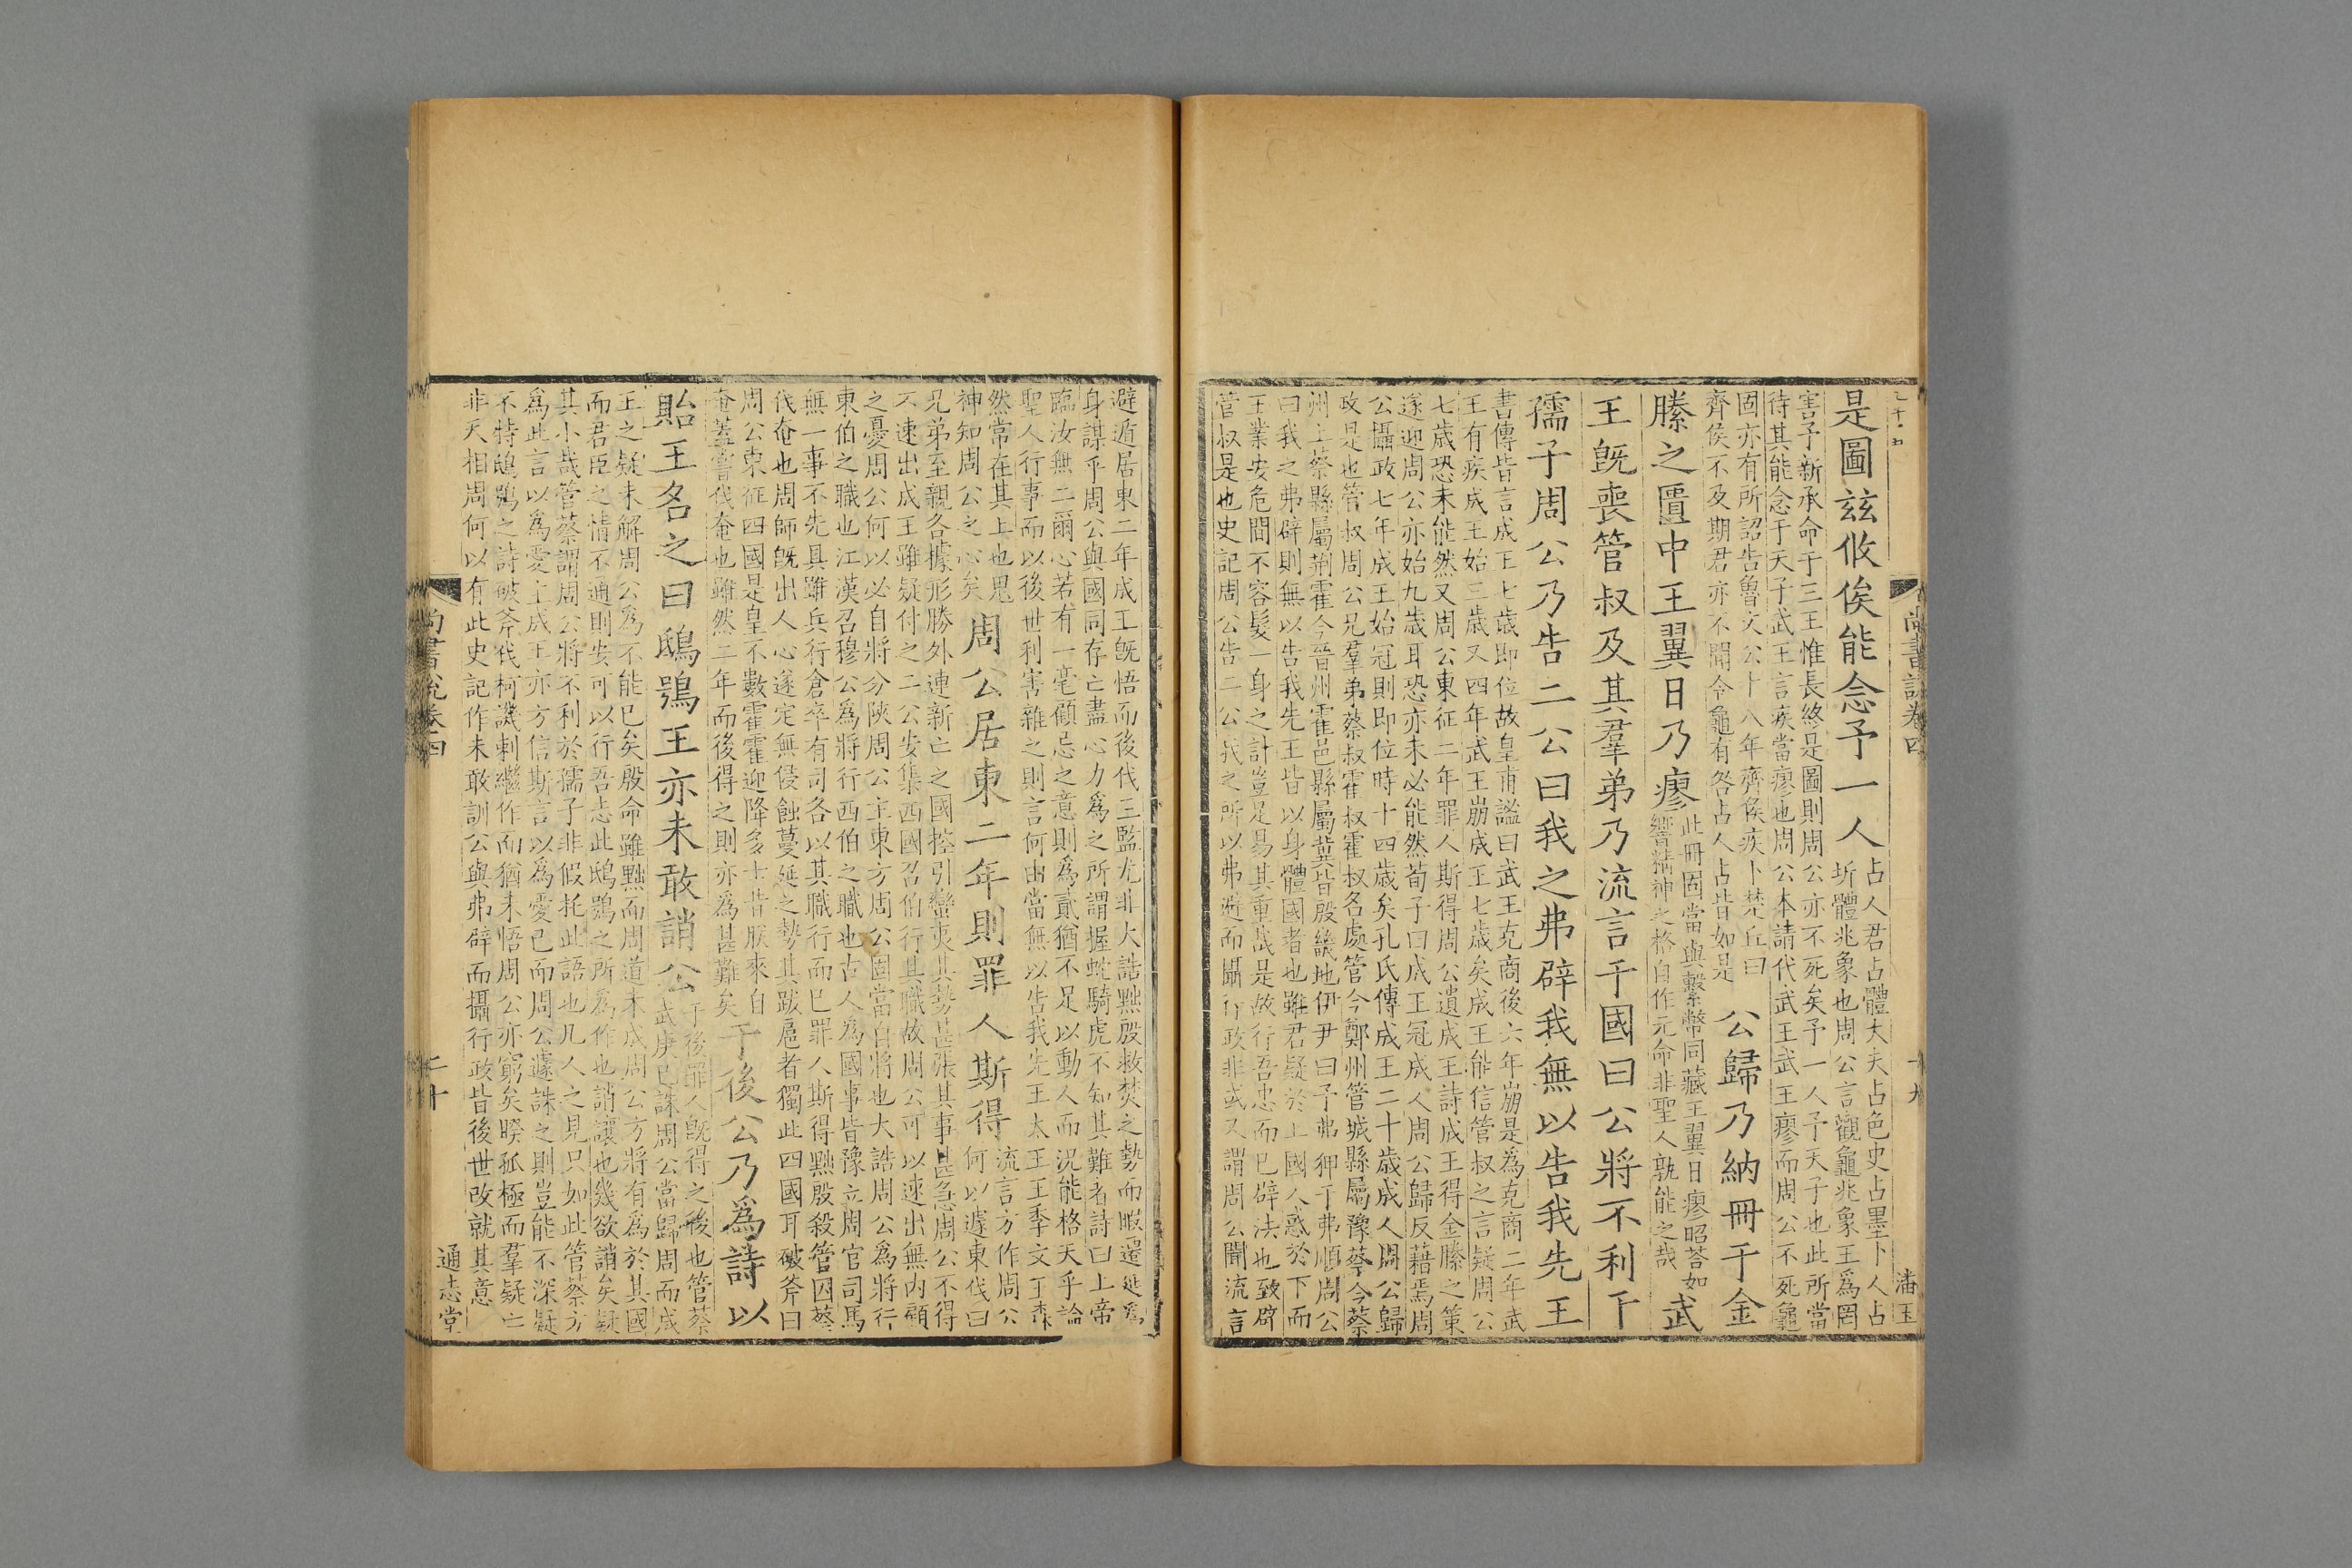 是圖茲攸俟能念予一人
占人君占體大夫占色史占墨卜人占
坼體兆象也周公言觀龜兆象王為罔
害予新承命于三王惟長終是圖則周公亦不死矣予一人予天子也此所當
待其能念于天子武王言疾當瘳也周公本請代武王武王瘳而周公不死龜
固亦有所詔告魯文公十八年齊侯疾卜楚丘曰
齊侯不及期君亦不聞令龜有咎占人占皆如是
公歸乃納冊于金
縢之匱中王翼日乃瘳
此冊固當與繫幣同藏王翼日瘳昭荅如
響精神之格自作元命非聖人孰能之哉
武
王旣喪管叔及其羣弟乃流言于國曰公將不利于
孺子周公乃告二公曰我之弗辟我無以告我先王
書傳皆言成王七歲即位故皇甫謐曰武王克商後六年崩是為克商二年武
王有疾成王始三歲又四年武王崩成王七歲矣成王能信管叔之言疑周公
七歲恐未能然又周公東征二年罪人斯得周公遺成王詩成王得金縢之策
遂迎周公亦始九歲耳恐亦未必能然荀子曰成王冠成人周公歸反藉焉周
公攝政七年成王始冠則即位時十四歲矣孔氏傳成王二十歲成人周公歸
政是也管叔周公兄羣弟蔡叔霍叔霍叔名處管今鄭州管城縣屬豫蔡今蔡
州上蔡縣屬荆霍今晉州霍邑縣屬冀皆殷畿地伊尹曰予弗狎于弗順周公
曰我之弗辟則無以告我先王皆以身體國者也雖君疑於上國人惑於下而
王業安危間不容髮一身之計豈足易其重哉是故行吾忠而已辟法也致辟
管叔是也史記周公告二公我之所以弗避而攝行政非或又謂周公聞流言
尚書說卷四
十九
潘玉
避遁居東二年成王旣悟而後代三監尤非大誥黜殷救焚之勢而暇遷延為
身謀乎周公與國同存亡盡心力為之所謂握蛇騎虎不知其難者詩曰上帝
臨汝無二爾心若有一毫顧忌之意則為貳猶不足以動人而況能格天乎論
聖人行事而以後世利害雜之則言何由當無以告我先王太王王季文王森
然常在其上也鬼
神知周公之心矣
周公居東二年則罪人斯得
流言方作周公
何以遽東伐曰
兄弟至親各據形勝外連新亡之國控引蠻夷其勢甚張其事甚急周公不得
不速出成王雖疑付之二公安集西國召伯行其職故周公可以速出無內顧
之憂周公何以必自將分陝周公主東方周公固當自將也大誥周公為將行
東伯之職也江漢召穆公為將行西伯之職也古人為國事皆豫立周官司馬
無一事不先具雖兵行倉卒有司各以其職行而已罪人斯得黜殷殺管囚蔡
伐奄也周師旣出人心遂定無侵蝕蔓延之勢其跋扈者獨此四國耳破斧曰
周公東征四國是皇不數霍霍迎降多士昔朕來自
奄蓋嘗伐奄也雖然二年而後得之則亦為甚難矣
于後公乃爲詩以
貽王名之曰鴟鴞王亦未敢誚公
于後罪人旣得之後也管蔡
武庚已誅周公當歸周而成
王之疑未解周公為不能已矣殷命雖黜而周道未成周公方將有為於其國
而君臣之情不通則安可以行吾志此鴟鴞之所為作也誚讓也幾欲誚矣疑
其小哉管蔡謂周公將不利於孺子非假托此語也凡人之見只如此管蔡方
為此言以為愛上成王亦方信斯言以為愛己而周公遽誅之則豈能不深疑
不特鴟鴞之詩破斧伐柯譏刺繼作而猶未悟周公亦窮矣睽孤極而羣疑亡
非天相周何以有此史記作未敢訓公與弗辟而攝行政皆後世改就其意
尚書說卷四
二十
通志堂